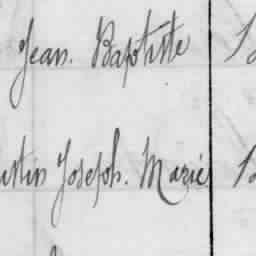 Jean. Baptiste
Joseph. Marie